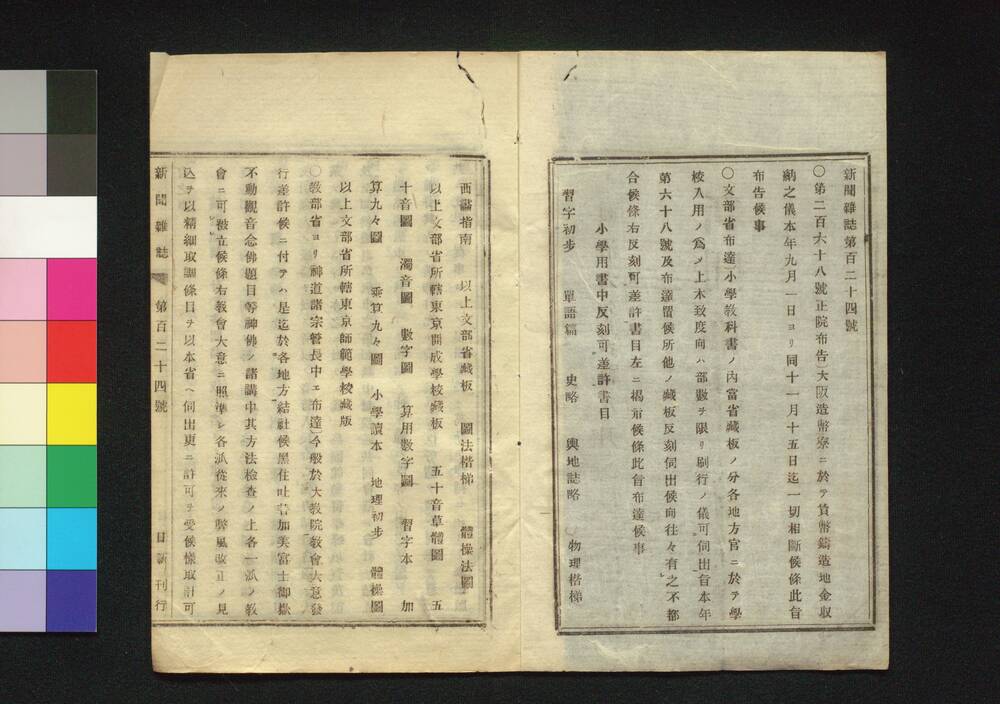 新聞雜誌第百二十四號
〇第二百六十八號正院布告〕大阪造幣寮ニ於テ貨幣鑄造地金収
納之儀本年九月一日ヨリ同十一月十五日迄一切相斷候條此旨
布告候事
〇文部省布達〕小學敎科書ノ內當省藏板ノ分各地方官ニ於テ學
校入用ノ爲メ上木致度向ハ部數ヲ限リ刷行ノ儀可伺出旨本年
第六十八號及布達置候所他ノ藏板反刻伺出候向往々有之不都
合候條右反刻可差許書目左ニ揭示候條此旨布達候事
小學用書中反刻可差許書目
習字初步 單語篇 史略 輿地誌略 物理楷梯
西畫指南 以上文部省藏板 圖法楷梯 體操法圖
以上文部省所轄東京開成學校藏板 五十音草體圖 五
十音圖 濁音圖 數字圖 算用數字圖 習字本 加
算九々圖 乘算九々圖 小學讀本 地理初步 體操圖
以上文部省所轄東京師範學校藏版
〇敎部省ヨリ神道諸宗管長中エ布達〕今般於大敎院敎會大意發
行差許候ニ付テハ是迄於各地方結社候黑住吐菩加美富士御嶽
不動觀音念佛題目等神佛ノ諸講中其方法檢查ノ上各一派ノ敎
會ニ可被立候條右敎會大意ニ照準シ各派從來ノ弊風改正ノ見
込ヲ以精細取調條目ヲ以本省ヘ伺出更ニ許可ヲ受候樣取計可
新聞雜誌 第百二十四號 日新刊行